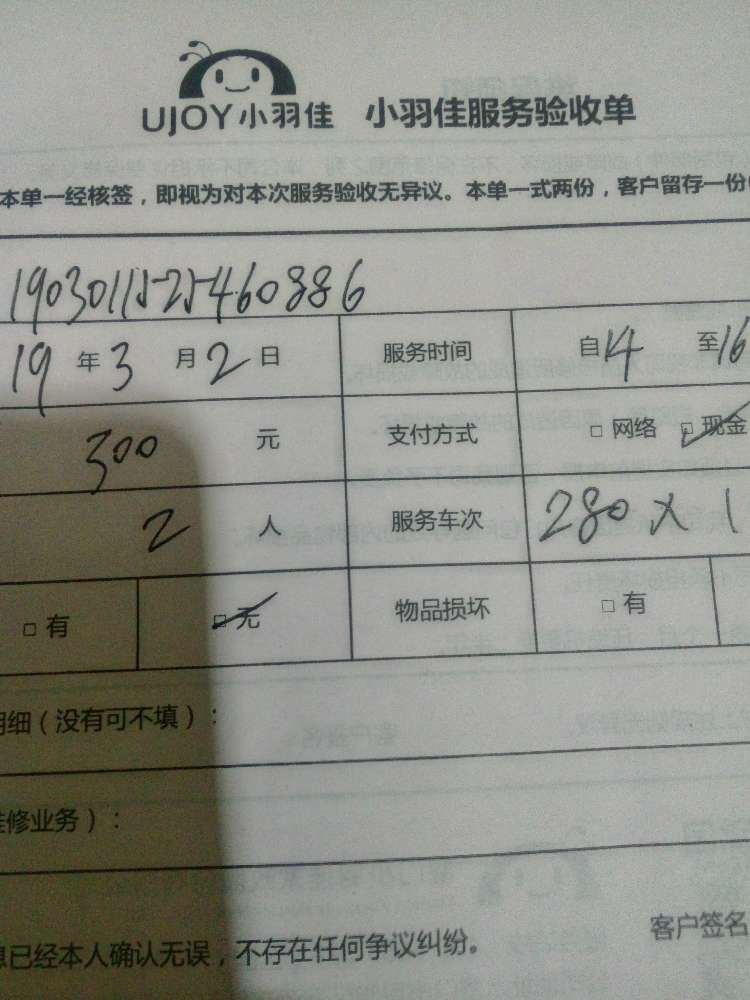 UJOY小羽佳 小羽佳服务验收单
本单一经核签，即视为对本次服务验收无异议。本单一式两份，客户留存一份
1903011525460886
19 年 3 月 2 日 服务时间 自14 至16
300 元 支付方式 □ 网络 □ 现金
2 人 服务车次 280 × 1
□ 有 □ 无 物品损坏 □ 有
明细（没有可不填）：
修业务）：
息已经本人确认无误，不存在任何争议纠纷。 客户签名